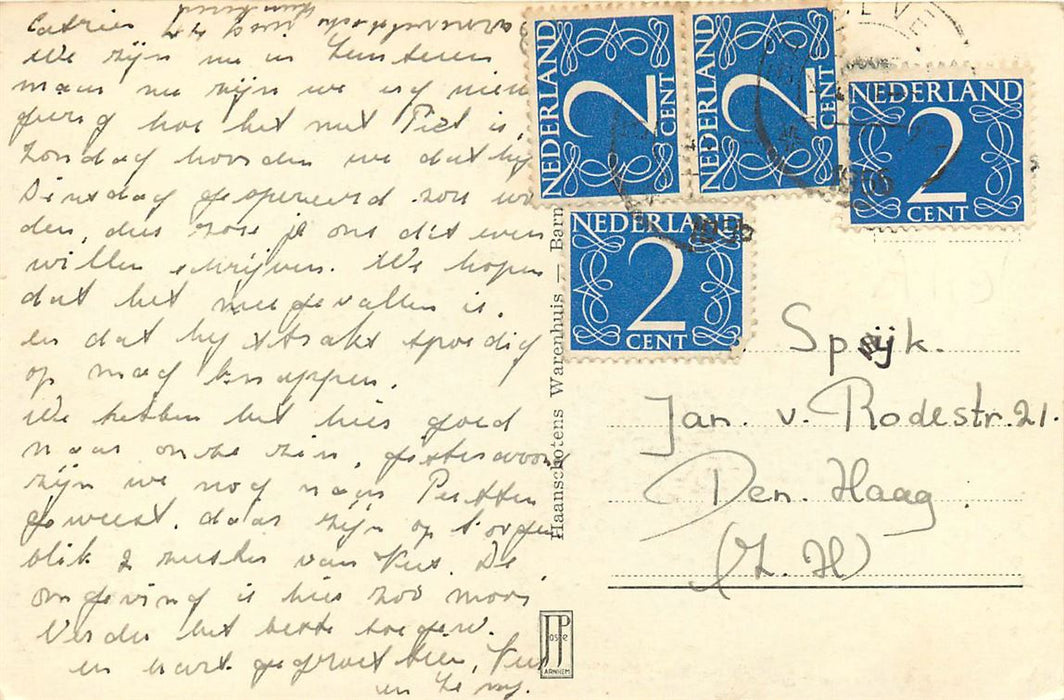 We zijn nu in Lunteren
maar nu zijn we erg nieuws
gierig hoe het met Piet is,
Zondag hoorden we dat hij
Dinsdag geopereerd zou wor
den, dus zou je ons dit even
willen schrijven. We hopen
dat het meegevallen is.
en dat hij straks spoedig
op mag knappen.
We hebben het hier goed
naar onze zin, gisteravond
zijn we nog naar Putten
geweest. daar zijn op 't ogen
blik 2 zusters van
De
omgeving is hier zoo mooi
Verder het beste toegew.
en hart. gegroet
en
NEDERLAND
2
CENT
NEDERLAND
2
CENT
NEDERLAND
2
CENT
NEDERLAND
2
CENT
Haanschotens Warenhuis — Barn
Spijk.
Jan. v. Rodestr. 21.
Den. Haag.
(Z. H)
JosPe
ARNHEM